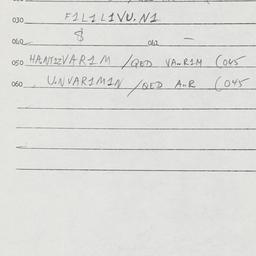 030 F1L1L1VU.N1
8
040 042 –
050 HANTZZVAR1M /QED VA~R1M (045
060 U.NVAR1M1N /QED A~R (045